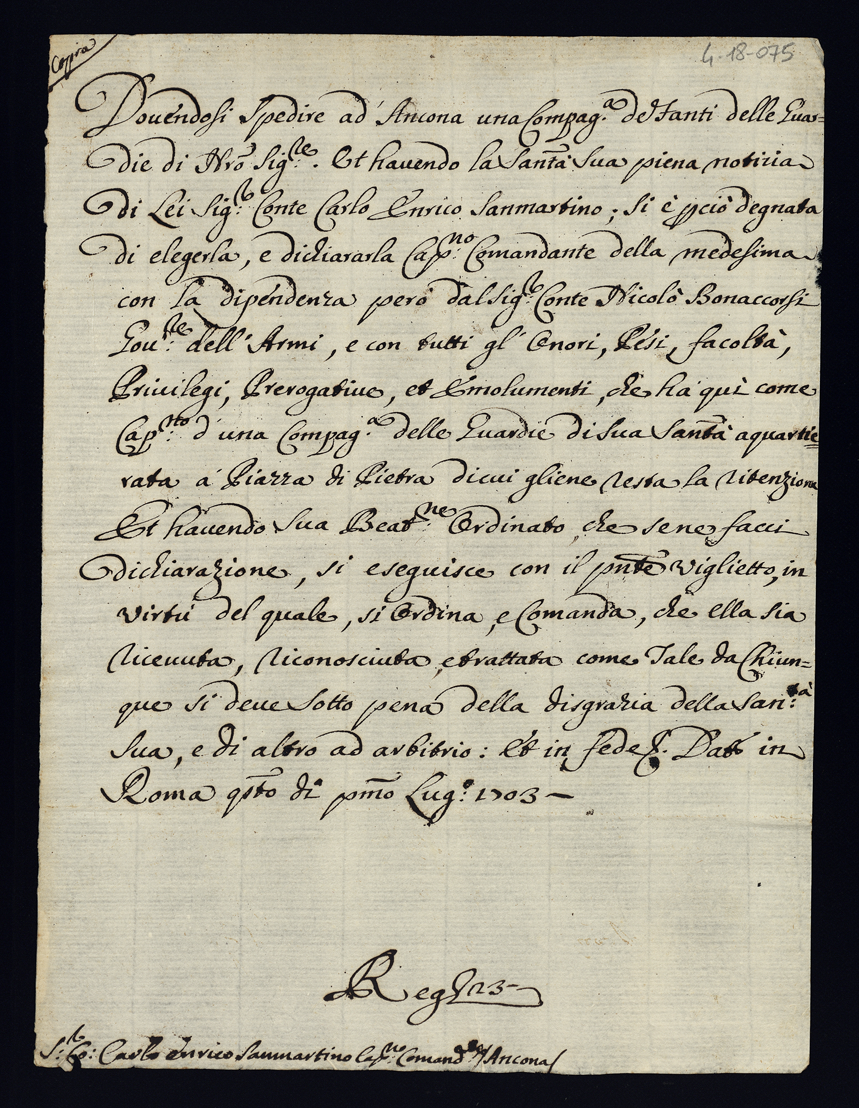 Coppia
4-18-075
Dovendosi Spedire ad Ancona una Compag.a de Fanti delle Guar=
die di Nrõ Sig.re. Et havendo la Santã Sua piena notizia
di Lei Sig.r Conte Carlo Enrico Sanmartino; si è pciò degnata
di elegerla, e dichiararla Cap.no Comandante della medesima
con la dipendenza però dal Sig.r Conte Nicolò Bonaccorsi
Gou.re dell'Armi, e con tutti gl'Onori, Pesi, facoltà,
Privilegi, Prerogative, et Emolumenti, che ha quì come
Cap.no d'una Compag.a delle Guardie di Sua Santã aquartie
rata a Piazza di Pietra di cui gliene resta la ritenzione
Et havendo Sua Beat.ne Ordinato, che sene facci
dichiarazione, si eseguisce con il pnte Viglietto, in
virtù del quale, si Ordina, e Comanda, che ella sia
riceuuta, riconosciuta, e trattata come Tale da Chiun=
que si deve sotto pena della disgrazia della San:tà
Sua, e di altro ad arbitrio: Et in fede Dat in
Roma qsto dì pmo Lug.o 1703 —
Reg 23
S.r Co: Carlo Enrico Sanmartino Cap.no Comand.te Ancona